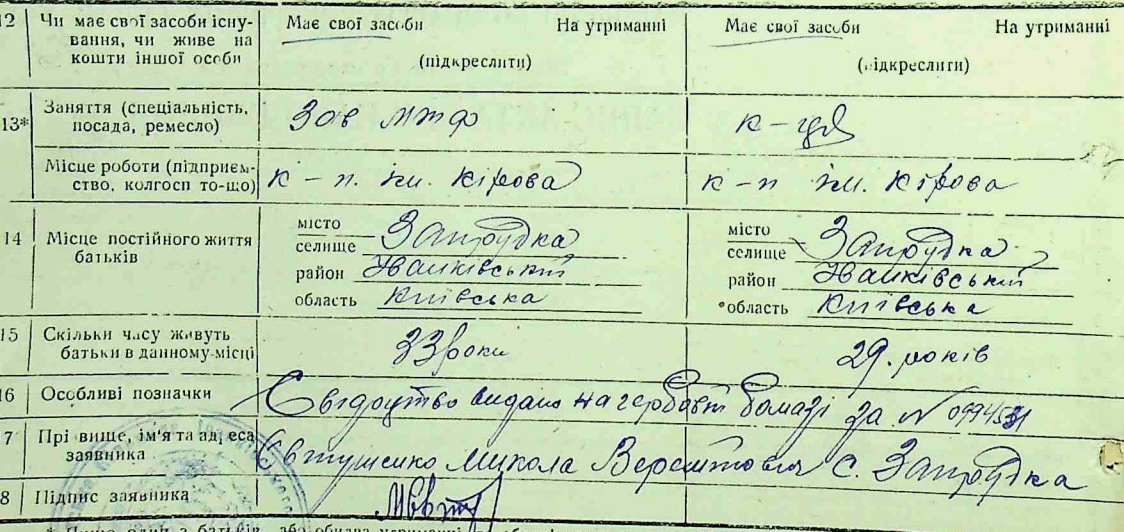 12 Чи має свої засоби існування, чи живе на кошти іншої особи Має свої засоби На утриманні (підкреслити) Має свої засоби На утриманні (підкреслити)
13* Заняття (спеціальність, посада, ремесло) Зав МТФ к-ця
Місце роботи (підприємство, колгосп то-що) к-п. ім. Кірова к-п ім. Кірова
14 Місце постійного життя батьків
місто селище Запрудка місто селище Запрудка
район Іванківський район Іванківський
область Київська область Київська
15 Скільки часу живуть батьки в данному місці 33 роки 29. років
16 Особливі позначки Свідоцтво видано на гербовій бомазі за N
17 Прі вище, ім'я та адреса заявника Євтушенко Микола с. Запрудка
18 Підпис заявника